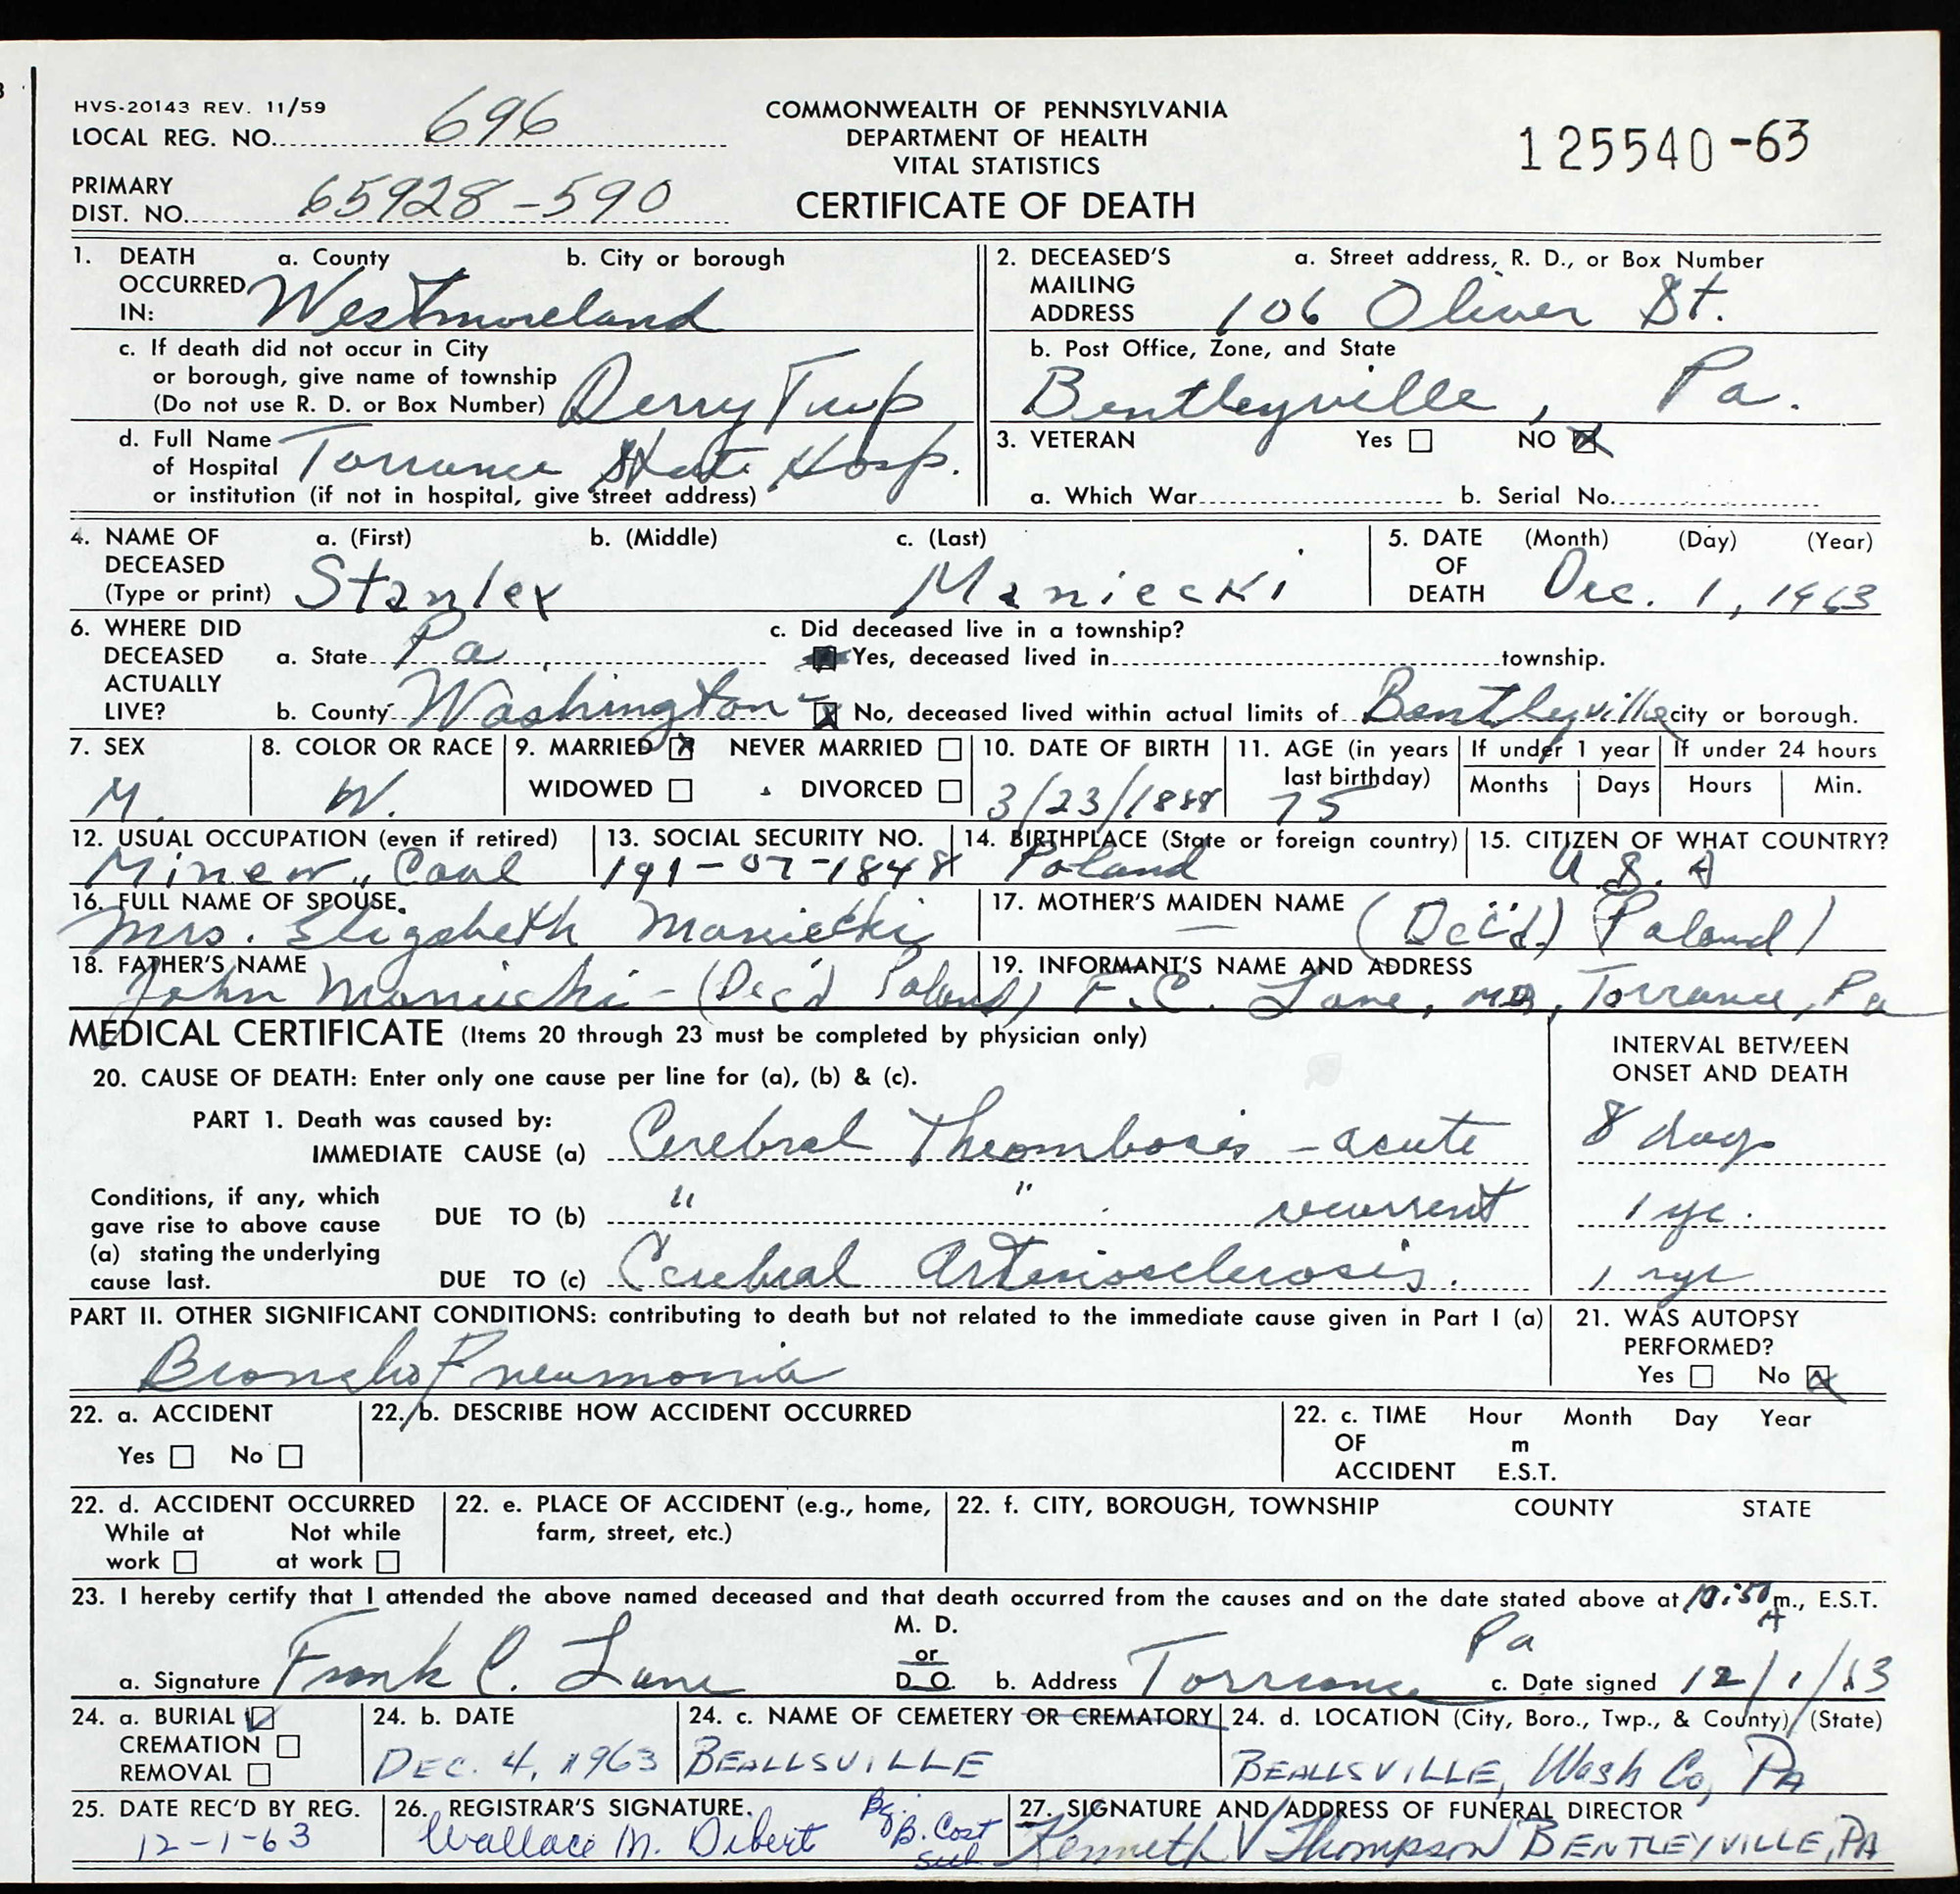 HVS-20143 REV. 11/59
LOCAL REG. NO. 696
PRIMARY
DIST. NO. 65928-590
COMMONWEALTH OF PENNSYLVANIA
DEPARTMENT OF HEALTH
VITAL STATISTICS
CERTIFICATE OF DEATH
125540-63
1. DEATH OCCURRED IN: a. County b. City or borough
Westmoreland
c. If death did not occur in City
or borough, give name of township
(Do not use R. D. or Box Number) Derry Twp
d. Full Name
of Hospital Torrance State Hosp.
or institution (if not in hospital, give street address)
2. DECEASED'S MAILING ADDRESS a. Street address, R. D., or Box Number
106 Oliver St.
b. Post Office, Zone, and State
Bentleyville, Pa.
3. VETERAN Yes NO X
a. Which War b. Serial No.
4. NAME OF DECEASED (Type or print) a. (First) b. (Middle) c. (Last)
Stanley Maniecki
5. DATE OF DEATH (Month) (Day) (Year)
Dec. 1, 1963
6. WHERE DID DECEASED ACTUALLY LIVE?
a. State Pa.
b. County Washington
c. Did deceased live in a township?
Yes, deceased lived in township.
X No, deceased lived within actual limits of Bentleyville city or borough.
7. SEX
M.
8. COLOR OR RACE
W.
9. MARRIED X NEVER MARRIED
WIDOWED DIVORCED
10. DATE OF BIRTH
3/23/1888
11. AGE (in years last birthday)
75
If under 1 year
Months Days
If under 24 hours
Hours Min.
12. USUAL OCCUPATION (even if retired)
Miner, Coal
13. SOCIAL SECURITY NO.
191-07-1848
14. BIRTHPLACE (State or foreign country)
Poland
15. CITIZEN OF WHAT COUNTRY?
U.S.A
16. FULL NAME OF SPOUSE.
Mrs. Elizabeth Maniecki
17. MOTHER'S MAIDEN NAME
— (Dec'd) Poland)
18. FATHER'S NAME
John Maniecki - (Dec'd Poland)
19. INFORMANT'S NAME AND ADDRESS
F. C. Lane, MD, Torrance, Pa
MEDICAL CERTIFICATE (Items 20 through 23 must be completed by physician only)
INTERVAL BETWEEN
ONSET AND DEATH
20. CAUSE OF DEATH: Enter only one cause per line for (a), (b) & (c).
PART 1. Death was caused by:
IMMEDIATE CAUSE (a) Cerebral Thrombosis - acute 8 days
Conditions, if any, which
gave rise to above cause
(a) stating the underlying
cause last.
DUE TO (b) " " recurrent 1 yr.
DUE TO (c) Cerebral Arteriosclerosis. 1 yr
PART II. OTHER SIGNIFICANT CONDITIONS: contributing to death but not related to the immediate cause given in Part I (a)
Broncho Pneumonia
21. WAS AUTOPSY
PERFORMED?
Yes No X
22. a. ACCIDENT
Yes No
22. b. DESCRIBE HOW ACCIDENT OCCURRED
22. c. TIME OF ACCIDENT Hour Month Day Year
m
E.S.T.
22. d. ACCIDENT OCCURRED
While at work Not while at work
22. e. PLACE OF ACCIDENT (e.g., home,
farm, street, etc.)
22. f. CITY, BOROUGH, TOWNSHIP COUNTY STATE
23. I hereby certify that I attended the above named deceased and that death occurred from the causes and on the date stated above at 10:50 A m., E.S.T.
a. Signature Frank C. Lane M. D. or D. O. b. Address Torrance Pa c. Date signed 12/1/63
24. a. BURIAL
CREMATION
REMOVAL
24. b. DATE
DEC. 4, 1963
24. c. NAME OF CEMETERY OR CREMATORY
BEALLSVILLE
24. d. LOCATION (City, Boro., Twp., & County) (State)
BEALLSVILLE, Wash Co, PA
25. DATE REC'D BY REG.
12-1-63
26. REGISTRAR'S SIGNATURE.
Wallace M. Dibert
27. SIGNATURE AND ADDRESS OF FUNERAL DIRECTOR
Kenneth V Thompson BENTLEYVILLE, PA